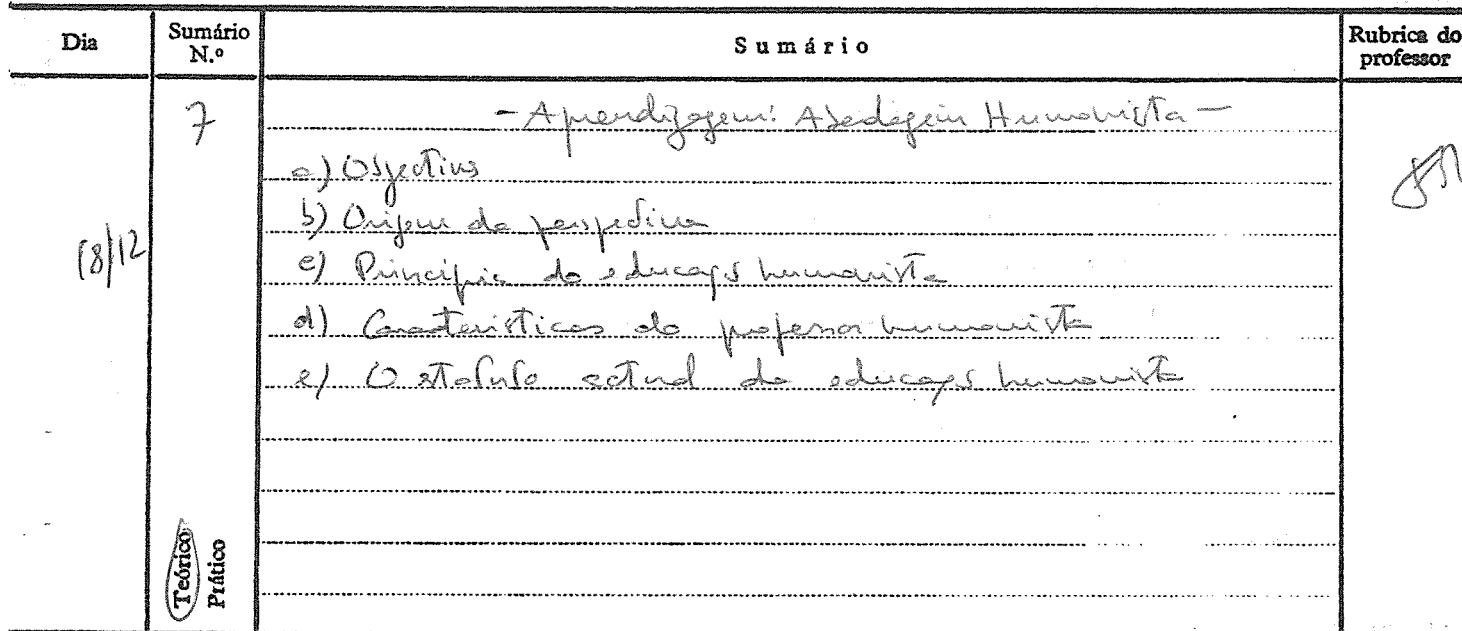 Dia
Sumário N.º
Sumário
Rubrica do professor
18/12
7
- Aprendizagem: Abordagem Humanista -
a) Objectivos
b) Origem da perspectiva
c) Princípios da educação humanista
d) Características do professor humanista
e) O estatuto actual da educação humanista
Teórico
Prático